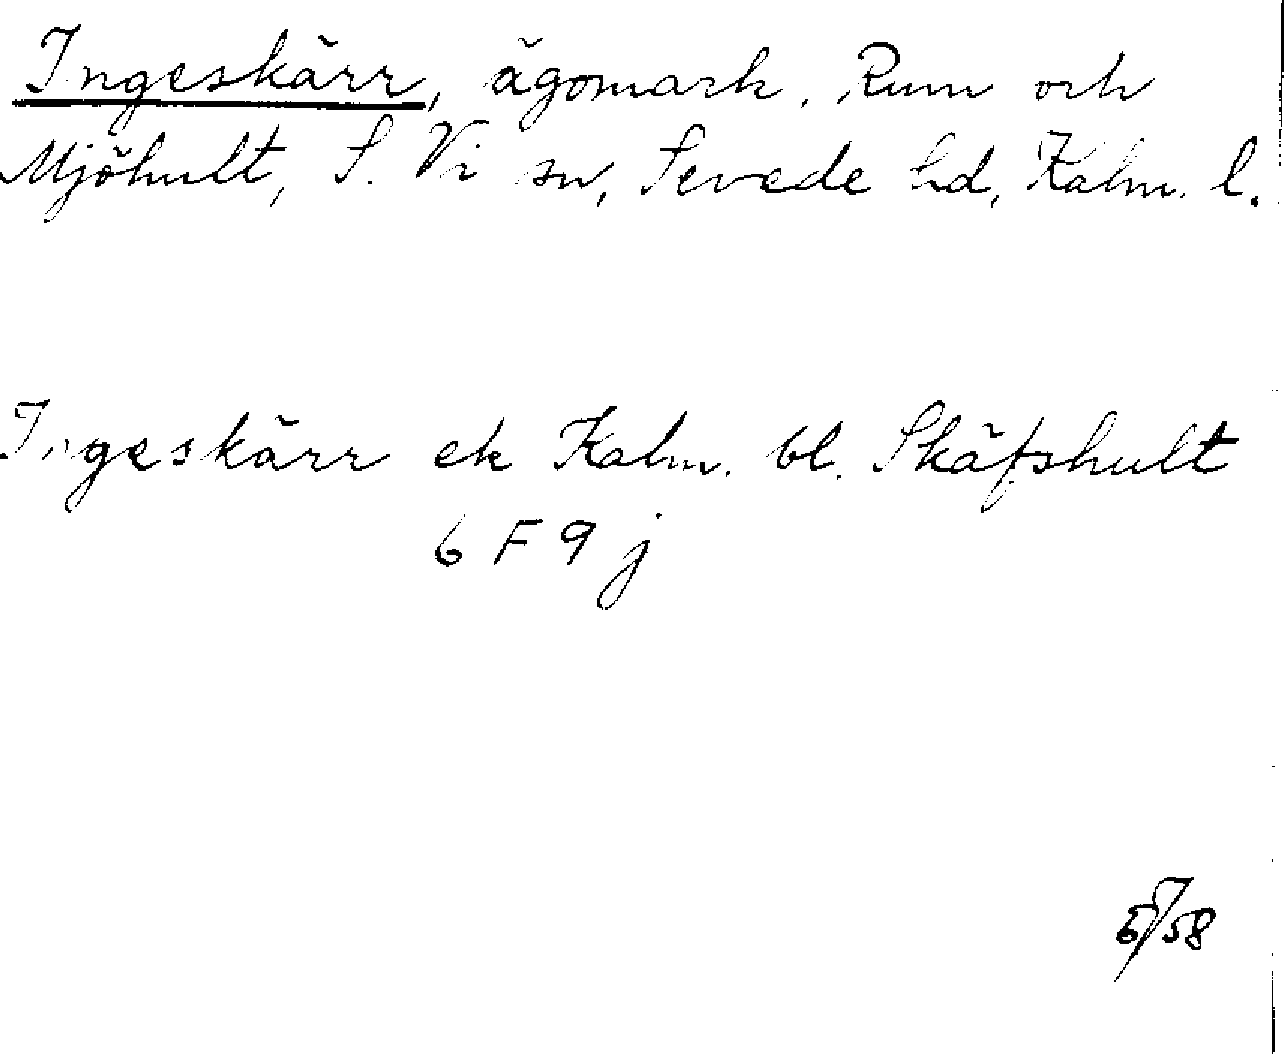 Ingeskärr, ägomark, Rum och
Mjöhult, S. Vi sn, Sevede hd, Kalm. l.
Ingeskärr ek Kalm. bl. Skäfshult
6 F 9 j